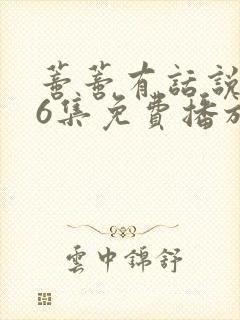 蔷蔷有話說
6集免費播放
雲中錦舒